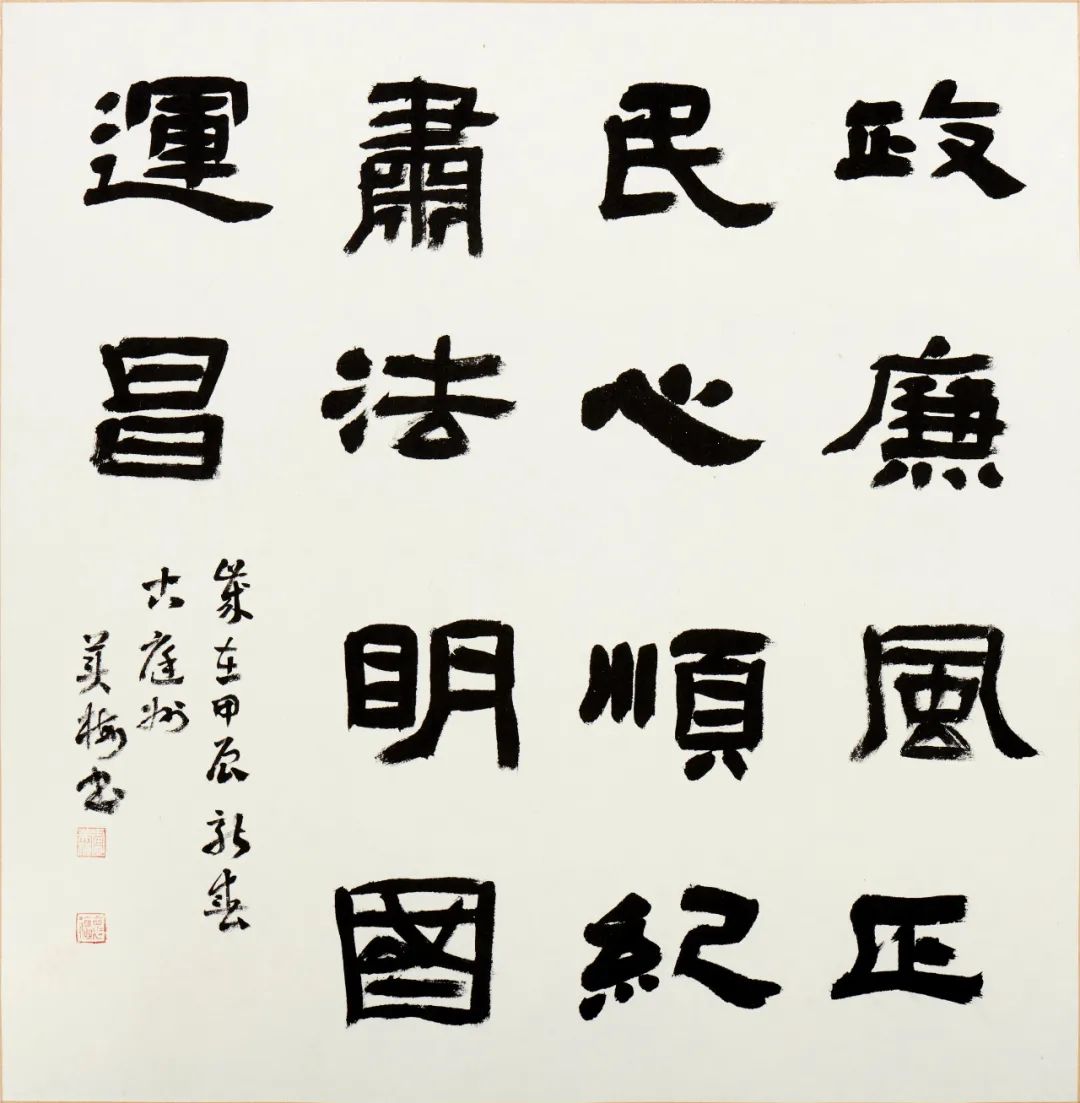 政廉風正
民心順紀
肅法明國
運昌
歲在甲辰新春
古庭州
美梅书